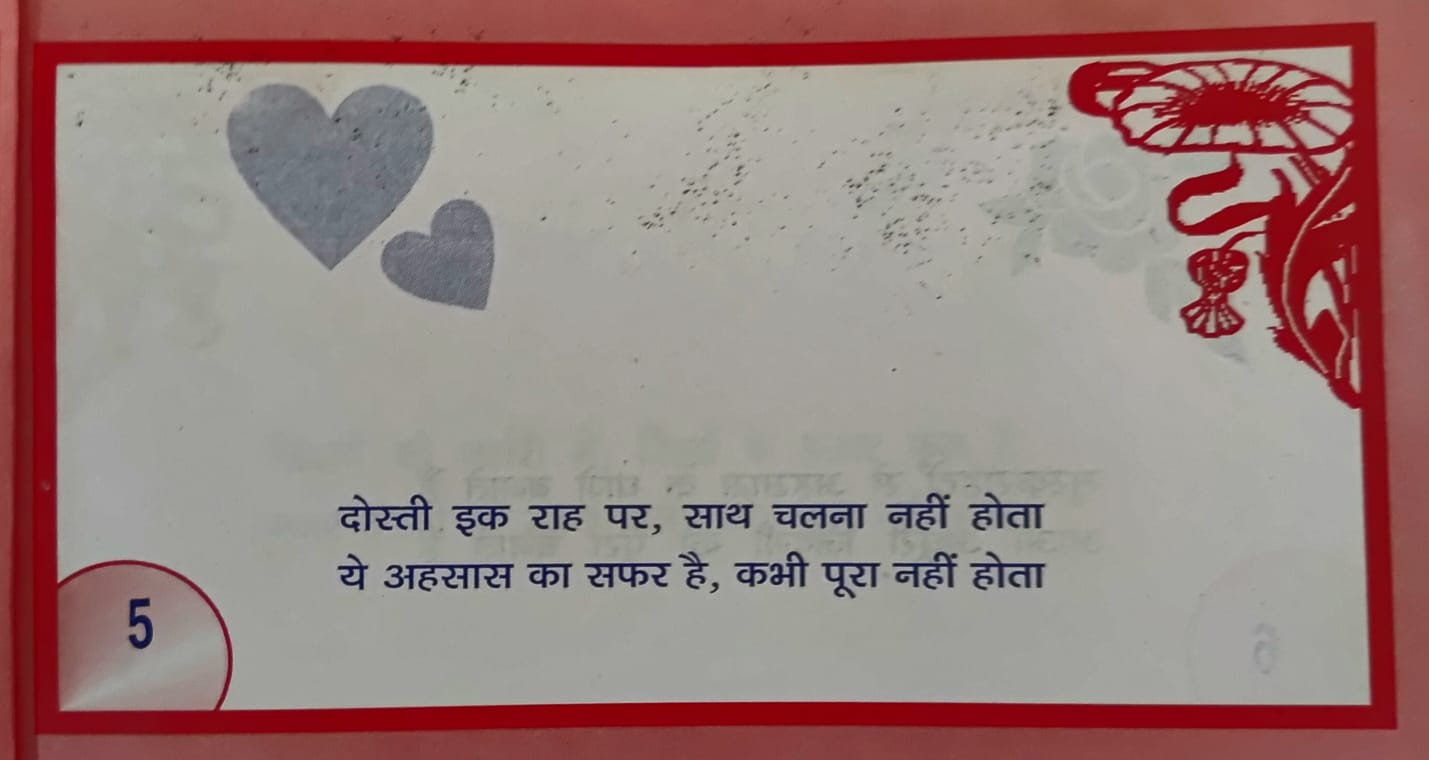 दोस्ती इक राह पर, साथ चलना नहीं होता
ये अहसास का सफर है, कभी पूरा नहीं होता
5